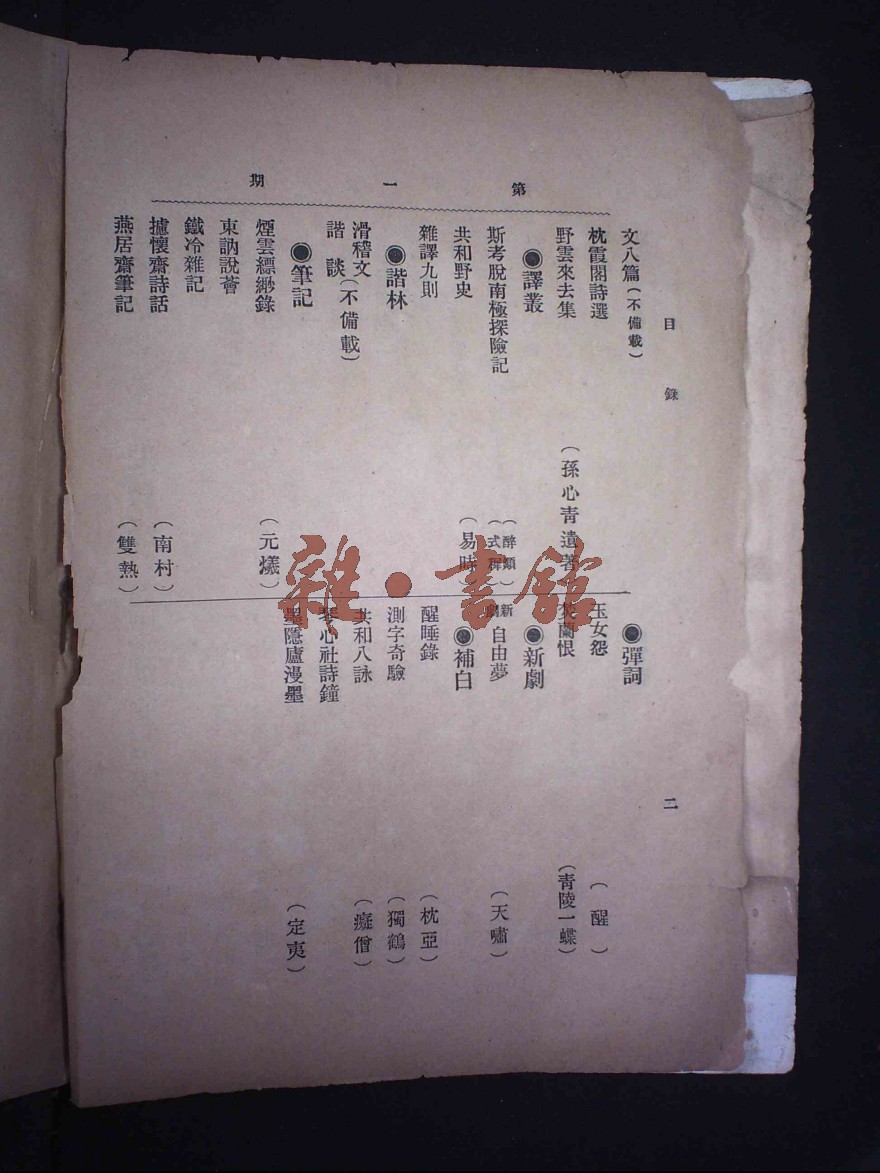 第一期
目錄 二
文八篇(不備載)
枕霞閣詩選
野雲來去集 (孫心青遺著)
●譯叢
斯考脫南極探險記 (醉顛)(式穉)
共和野史 (易時)
雜譯九則
●諧林
滑稽文
諧談(不備載)
●筆記
煙雲縹緲錄 (元爔)
東訥說薈
鐵冷雜記
攄懷齋詩話 (南村)
燕居齋筆記 (雙熱)
●彈詞
玉女怨 (醒)
蘭恨 (青陵一蝶)
●新劇
新劇 自由夢 (天嘯)
●補白
醒睡錄 (枕亞)
測字奇驗 (獨鶴)
共和八詠 (癡僧)
琴心社詩鐘
墨隱廬漫墨 (定夷)
雜·書館